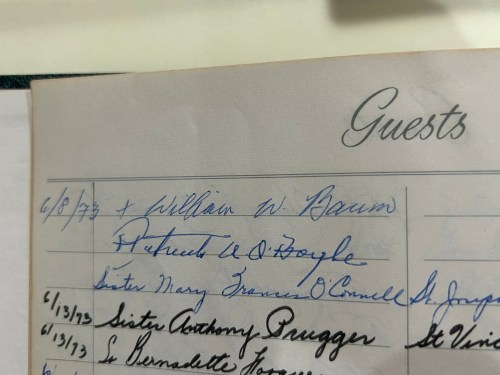 Guests
6/8/73 + William W. Baum
+ Patrick A O'Boyle
Sister Mary Frances O'Connell St. Joseph
6/13/73 Sister Anthony Prugger St Vinc
6/13/73 Sr Bernadette